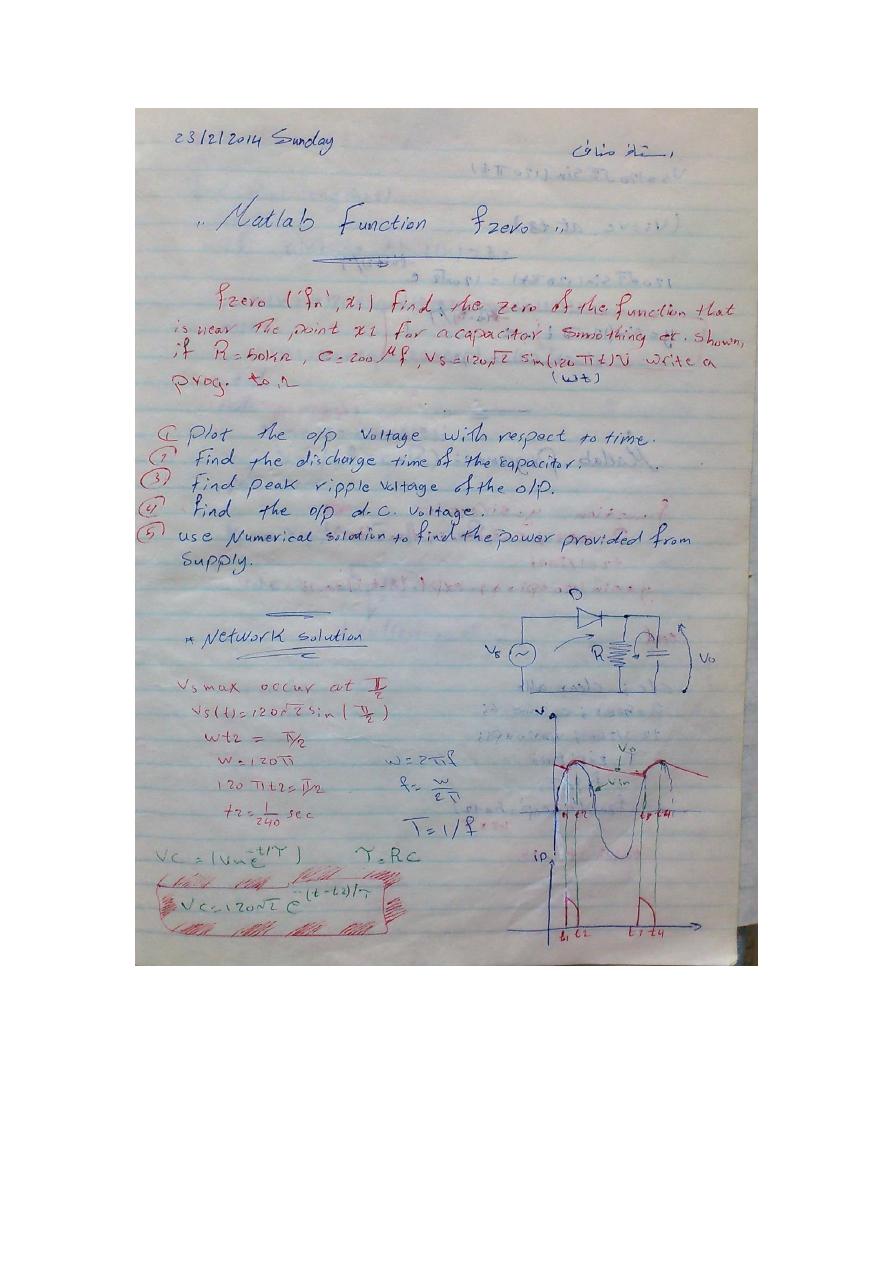 23/2/2014 Sunday
استاذ مناف
.. Matlab Function fzero ..
fzero ('fn', x1) find the zero of the function that
is near the point x1 for a capacitor Smoothing cr. shown,
if R=50kΩ, C=200 μf, Vs=120√2 sin(120πt)V write a
(wt)
prog. to
① plot the o/p voltage with respect to time.
② Find the discharge time of the capacitor.
③ Find peak ripple voltage of the o/p.
④ find the o/p d.C. voltage.
⑤ use Numerical solution to find the power provided from
supply.
* Network solution
D
Vs
R
Vo
Vs max occur at π/2
Vs(t)=120√2 sin(π/2)
wt2 = π/2
w=120π
w=2πf
120πt2=π/2
f=w/2π
t2=1/240 sec
T=1/f
Vc=(Vm e^-t/τ)
τ=RC
Vc=120√2 e^-(t-t2)/τ
V
Vo
Vin
t1 t2 t3 t4
iD
t1 t2 t3 t4